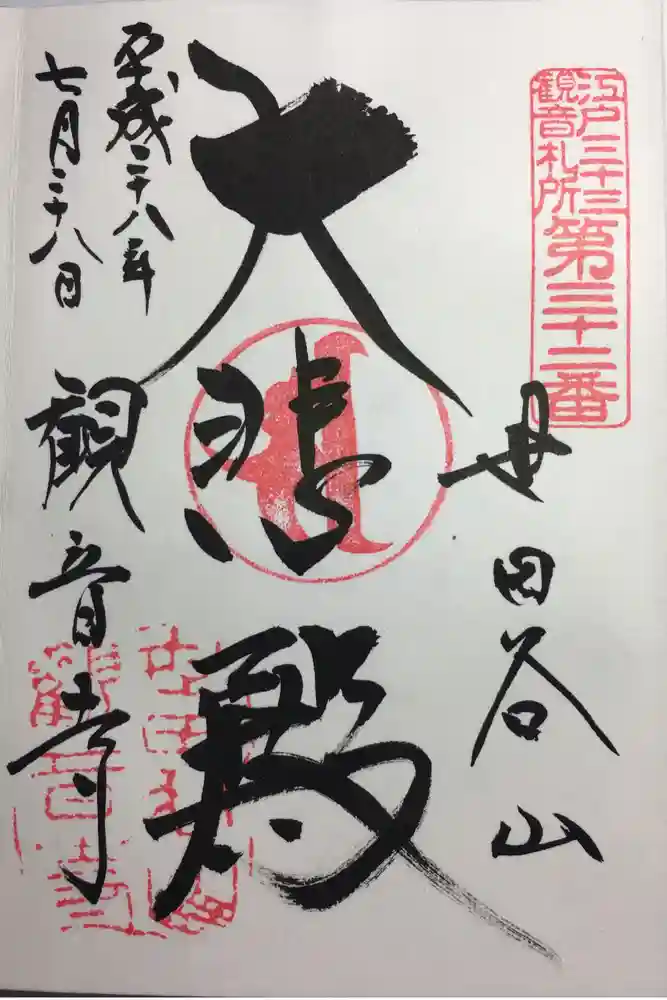 江戸三十三
観音札所
第三十二番
世田谷山
大悲殿
平成二十八年
七月二十八日
観音寺
世田谷山
観音寺